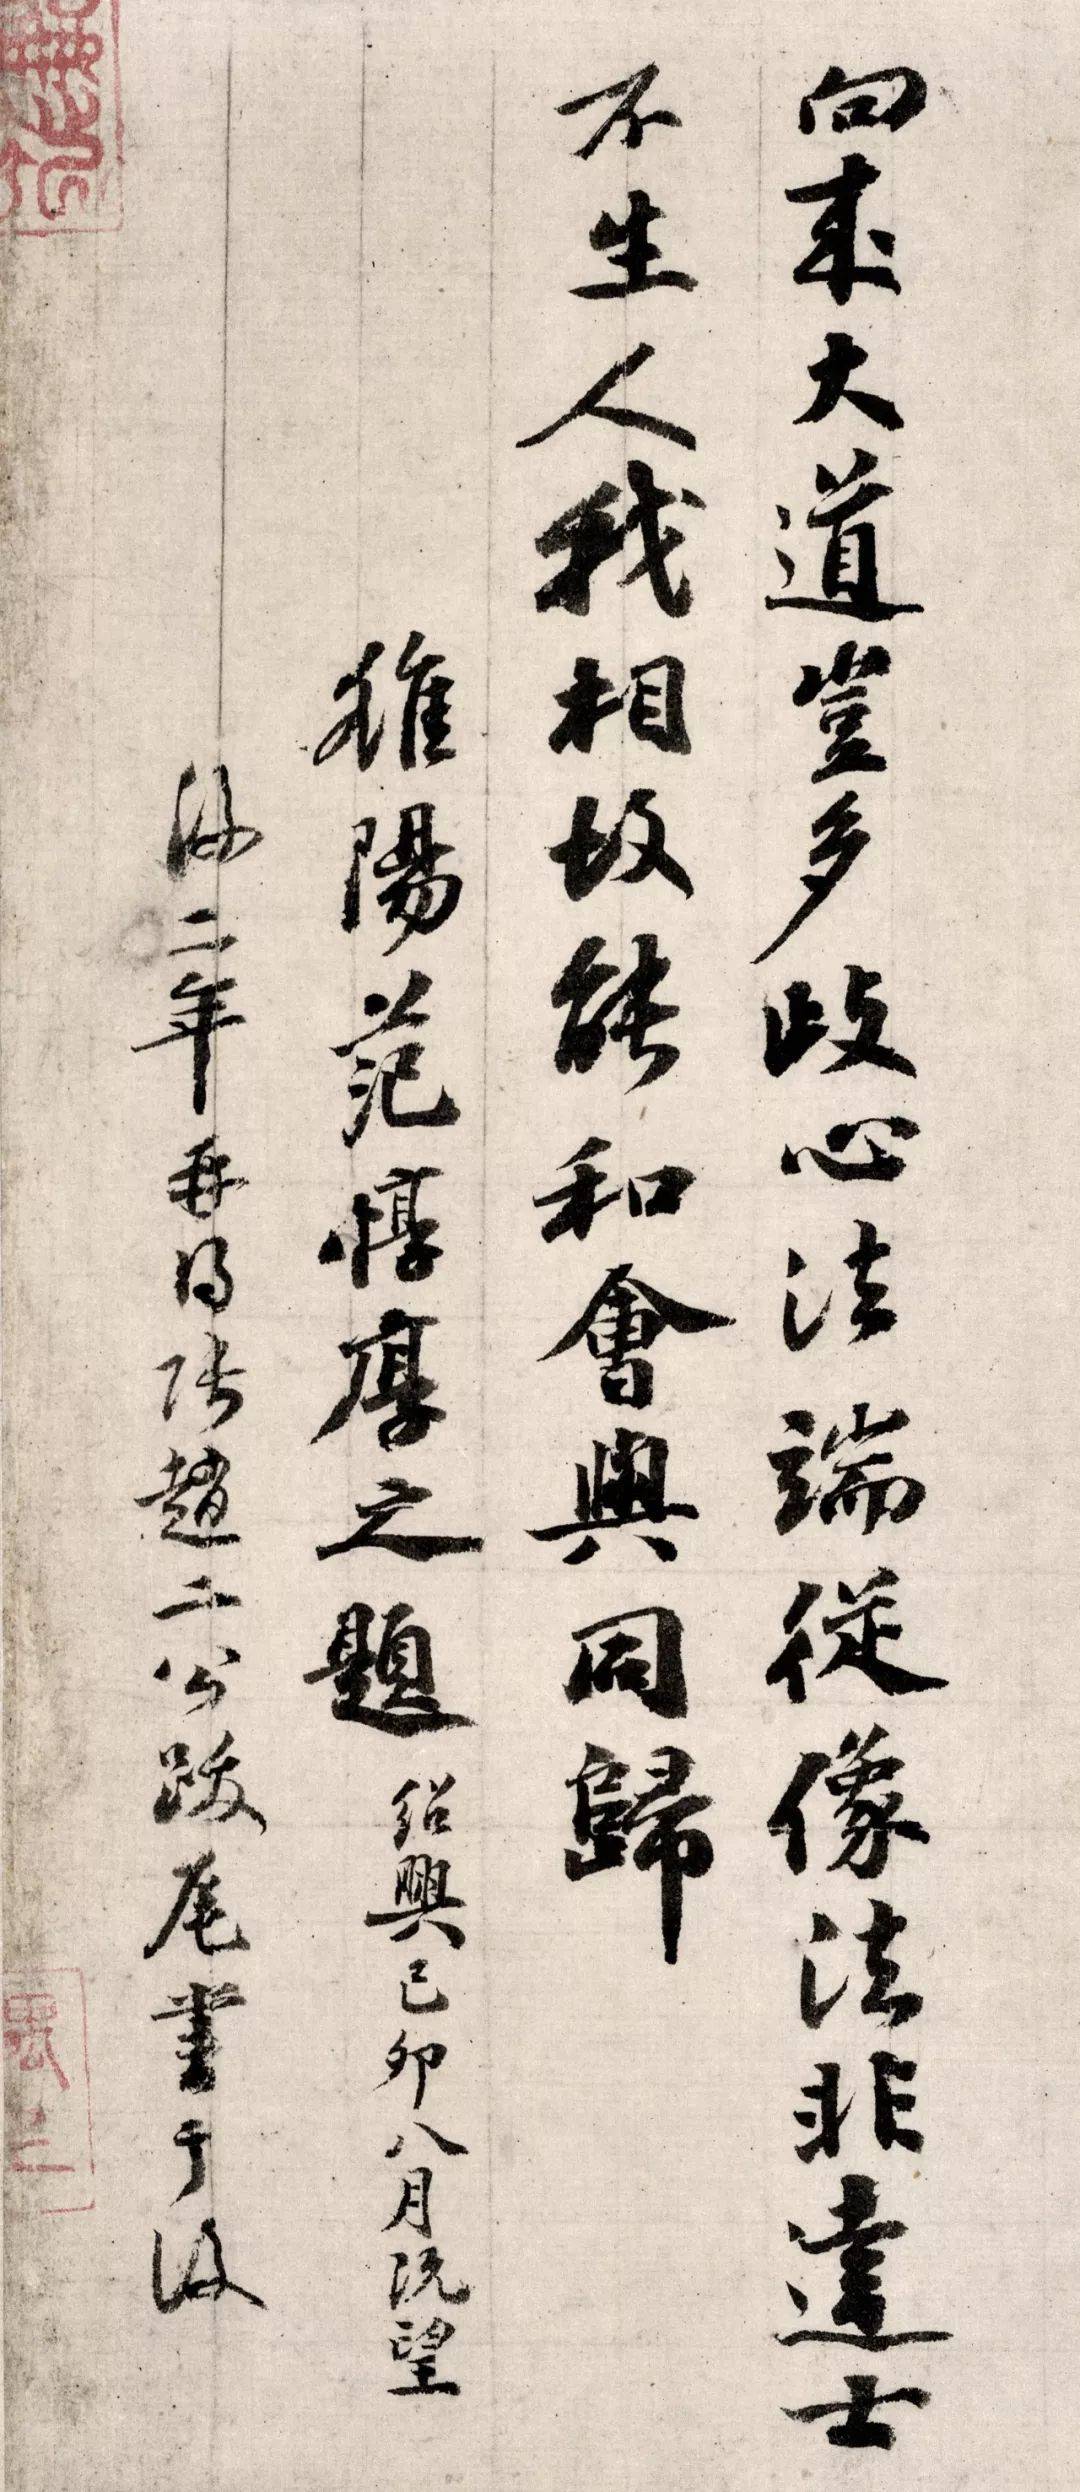 向來大道豈多歧心法端從像法非達士
不生人我相故能和會與同歸
睢陽范惇厚之題 紹興己卯八月既望
後二年再得張趙二公跋尾書于後